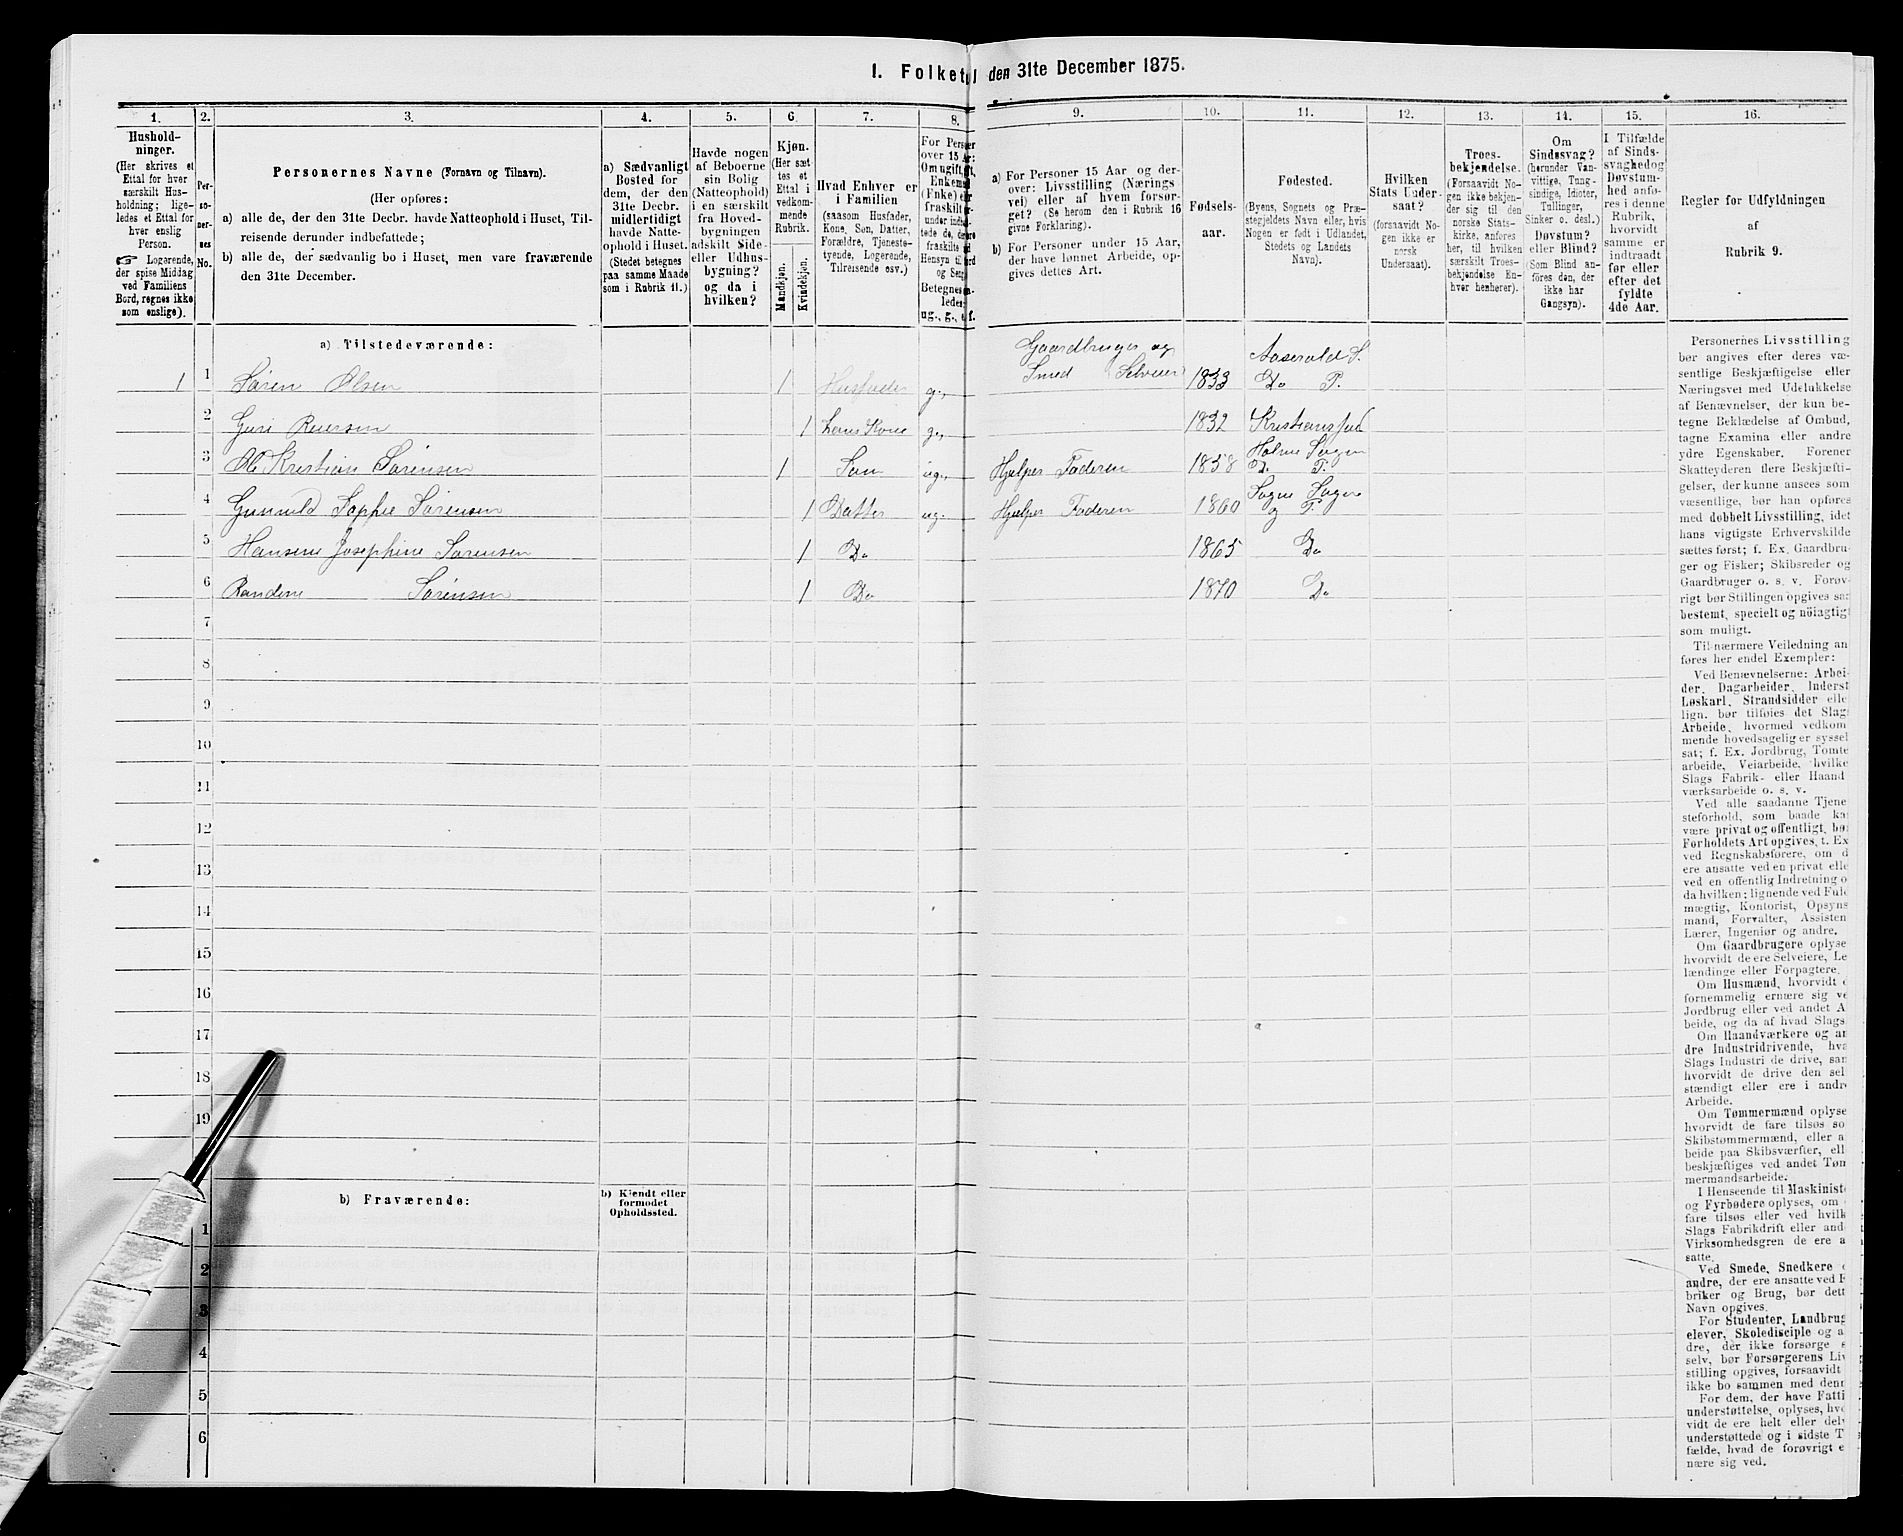 I. Folketal den 31te December 1875.
1. 2. 3. 4. 5. 6. 7. 8. 9. 10. 11. 12. 13. 14. 15. 16.
Hushold-
ninger.
(Her skrives et
Ettal for hver
særskilt Hus-
holdning; lige-
ledes et Ettal for
hver enslig
Person.
☞ Logerende,
der spise Middag
ved Familiens
Bord, regnes ikke
som enslige).
Per-
so-
ner-
nes
No.
Personernes Navne (Fornavn og Tilnavn).
(Her opføres:
a) alle de, der den 31te Decbr. havde Natteophold i Huset, Til-
reisende derunder indbefattede;
b) alle de, der sædvanlig bo i Huset, men vare fraværende
den 31te December.
a) Sædvanligt
Bosted for
dem, der den
31te Decbr.
midlertidigt
havde Natte-
ophold i Huset.
(Stedet betegnes
paa samme Maade
som i Rubrik 11.)
Havde nogen
af Beboerne
sin Bolig
(Natteophold)
i en særskilt
fra Hoved-
bygningen
adskilt Side-
eller Udhus-
bygning?
og da i
hvilken?
Kjøn.
(Her sæt-
tes et
Ettal i
vedkom-
mende
Rubrik.
Mandkjøn.
Kvindekjøn.
Hvad Enhver er
i Familien
(saasom Husfader,
Kone, Søn, Datter,
Forældre, Tjeneste-
tyende, Logerende,
Tilreisende osv.)
For Person
over 15 Aar:
Om ugift,
Enkemand
(Enke) eller
fraskilt
Betegnes
ledes:
ug., g., e., f.
a) For Personer 15 Aar og der-
over: Livsstilling (Nærings-
vei) eller af hvem forsør-
get? (Se herom den i Rubrik 16
givne Forklaring).
b) For Personer under 15 Aar,
der have lønnet Arbeide, op-
gives dettes Art.
Fødsels-
aar.
Fødested.
(Byens, Sognets og Præ-
stegjeldets Navn eller, hvis
Nogen er født i Udlandet,
Stedets og Landets
Navn).
Hvilken
Stats Under-
saat?
(forsaavidt No-
gen ikke er
norsk
Undersaat).
Troes-
bekjendelse.
(Forsaavidt No-
gen ikke bekjen-
der sig til den
norske Stats-
kirke, anføres
her, til hvilken
særskilt Troes-
bekjendelse En-
hver henhører).
Om
Sindssvag?
(herunder Van-
vittige, Tung-
sindige, Idioter,
Tullinger,
Sinker o. desl.)
Døvstum?
eller Blind?
(Som Blind an-
føres den, der
ikke har
Gangsyn).
I Tilfælde
af Sinds-
svaghed og
Døvstum-
hed anfø-
res i denne
Rubrik,
hvorvidt
samme er
indtraadt
før eller
efter det
fyldte
4de Aar.
Regler for Udfyldningen
af
Rubrik 9.
a) Tilstedeværende:
1 1 Søren Olsen 1 Husfader g., Gaardbruger og
Smed Selveier 1833 Aaserald S.
Do P.
2 Guri Reiersen 1 hans Kone g., 1832
3 Ole Kristian Sørensen 1 Søn ug., Hjelper Faderen 1858 Holme Sogn
Do P.
4 Gunvald Sophie Sørensen 1 Datter ug. Hjelper Faderen 1860 Søgne Sogn
og P.
5 Hansene Josephine Sørensen 1 Do 1865 Do
6 Randine Sørensen 1 Do 1870 Do
7
8
9
10
11
12
13
14
15
16
17
18
19
b) Fraværende:
b) Kjendt eller
formodet
Opholdssted.
1
2
3
4
5
6
Personernes Livsstilling
bør angives efter deres væ-
sentlige Beskjæftigelse eller
Næringsvei med Udelukkelse
af Benævnelser, der kun be-
tegne Beklædelse af Ombud,
tagne Examina eller andre
ydre Egenskaber. Forener
Skatteyderen flere Beskjæfti-
gelser, der kunne ansees som
væsentlige, bør han opføres
med dobbelt Livsstilling, idet
hans vigtigste Erhvervskilde
sættes først; f. Ex. Gaardbru-
ger og Fisker; Skibsreder og
Gaardbruger o. s. v. Forøv-
rigt bør Stillingen opgives saa
bestemt, specielt og nöiagtigt
som muligt.
Til nærmere Veiledning an
føres her endel Exempler:
Ved Benævnelserne: Arbei-
der, Dagarbeider, Inderst
Løskarl, Strandsidder elle
lign. bør tilføies det Slags
Arbeide, hvormed vedkom
mende hovedsagelig er syssel
sat; f. Ex. Jordbrug, Tomte
arbeide, Veiarbeide, hvilke
Slags Fabrik- eller Haand
værksarbeide o. s. v.
Ved alle saadanne Tjene
steforhold, som baade ka
være privat og offentligt, bø
Forholdets Art opgives, t. Ex
ved Regnskabsførere, om d
ere ansatte ved en privat elle
ved en offentlig Indretning o
da hvilken; lignende ved Ful
mægtig, Kontorist, Opsyns
mand, Forvalter, Assisten
Lærer, Ingeniør og andre.
Om Gaardbrugere oplyse
hvorvidt de ere Selveiere, Le
lændinge eller Forpagtere.
Om Husmænd, hvorvidt
fornemmelig ernære sig ve
Jordbrug eller ved andet A
beide, og da af hvad Slags
Om Haandværkere og an
dre Industridrivende, hva
Slags Industri de drive, sam
hvorvidt de drive den sel
stændigt eller ere i andre
Arbeide.
Om Tømmermænd oplyse
hvorvidt de fare tilsøs so
Skibstømmermænd, eller a
beide paa Skibsværfter, ell
beskjæftiges ved andet Tøm
mermandsarbeide.
I Henseende til Maskinist
og Fyrbødere oplyses, om
fare tilsøs eller ved hvilk
Slags Fabrikdrift eller ande
Virksomhedsgren de ere a
satte.
Ved Smede, Snedkere
andre, der ere ansatte ved F
briker og Brug, bør dett
Navn opgives.
For Studenter, Landbrug
elever, Skoledisciple og a
dre, der ikke forsørge s
selv, bør Forsørgerens Liv
stilling opgives, forsaavidt
ikke bo sammen med denn
For dem, der have Fatti
understøttelse, oplyses, hvo
vidt de ere helt eller delv
understøttede og i sidste T
fælde, hvad de forøvrigt e
nære sig ved.